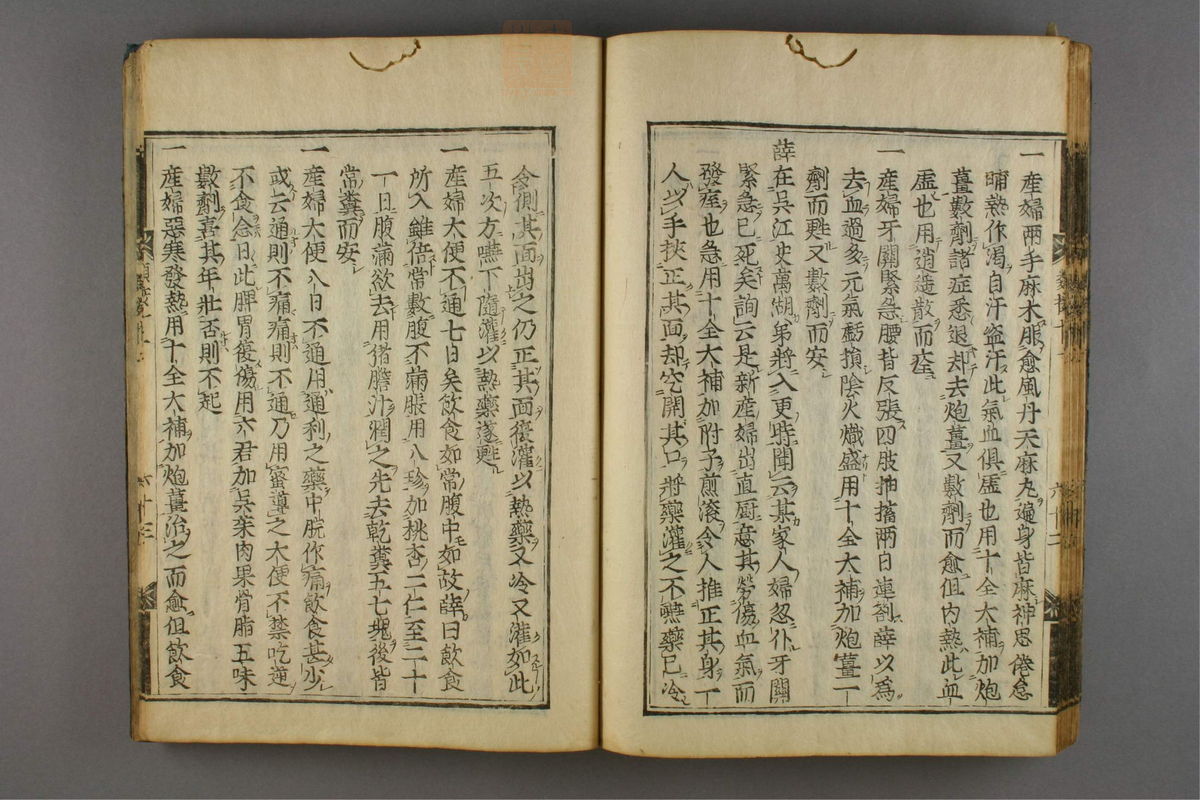 一産婦兩手麻木服愈風丹天麻丸遍身皆麻神思倦怠
晡熱作渴自汗盜汗此氣血俱虛也用十全大補加炮
薑數劑諸症悉退却去炮薑又數劑而愈但内熱此血
虛也用逍遙散而痊
一産婦牙關緊急腰背反張四肢抽搐兩目連劄薛以爲
去血過多元氣虧損陰火熾盛用十全大補加炮薑一
劑而甦又數劑而安
薛在吳江史萬湖弟將入更時聞云某家人婦忽仆牙關
緊急已死矣詢云是新産婦出直厨意其勞傷血氣而
發痓也急用十全大補加附子煎滾令人推正其身一
人以手挾正其面却空開其口將藥灌之不嚥藥已冷
令側其面出之仍正其面復灌以熱藥又冷又灌如此
五次方嚥下隨灌以熱藥遂甦
一産婦大便不通七日矣飲食如常腹中如故薛曰飲食
所入雖倍常數腹不滿脹用八珍加桃杏二仁至二十
一日腹滿欲去用猪膽汁潤之先去乾糞五七塊後皆
常糞而安
一産婦大便八日不通用通利之藥中脘作痛飲食甚少
或云通則不痛痛則不通乃用蜜導之大便不禁吃逆
不食余曰此脾胃復傷用六君加吳茱肉果骨脂五味
數劑喜其年壯否則不起
一産婦惡寒發熱用十全大補加炮薑治之而愈但飲食
六十二